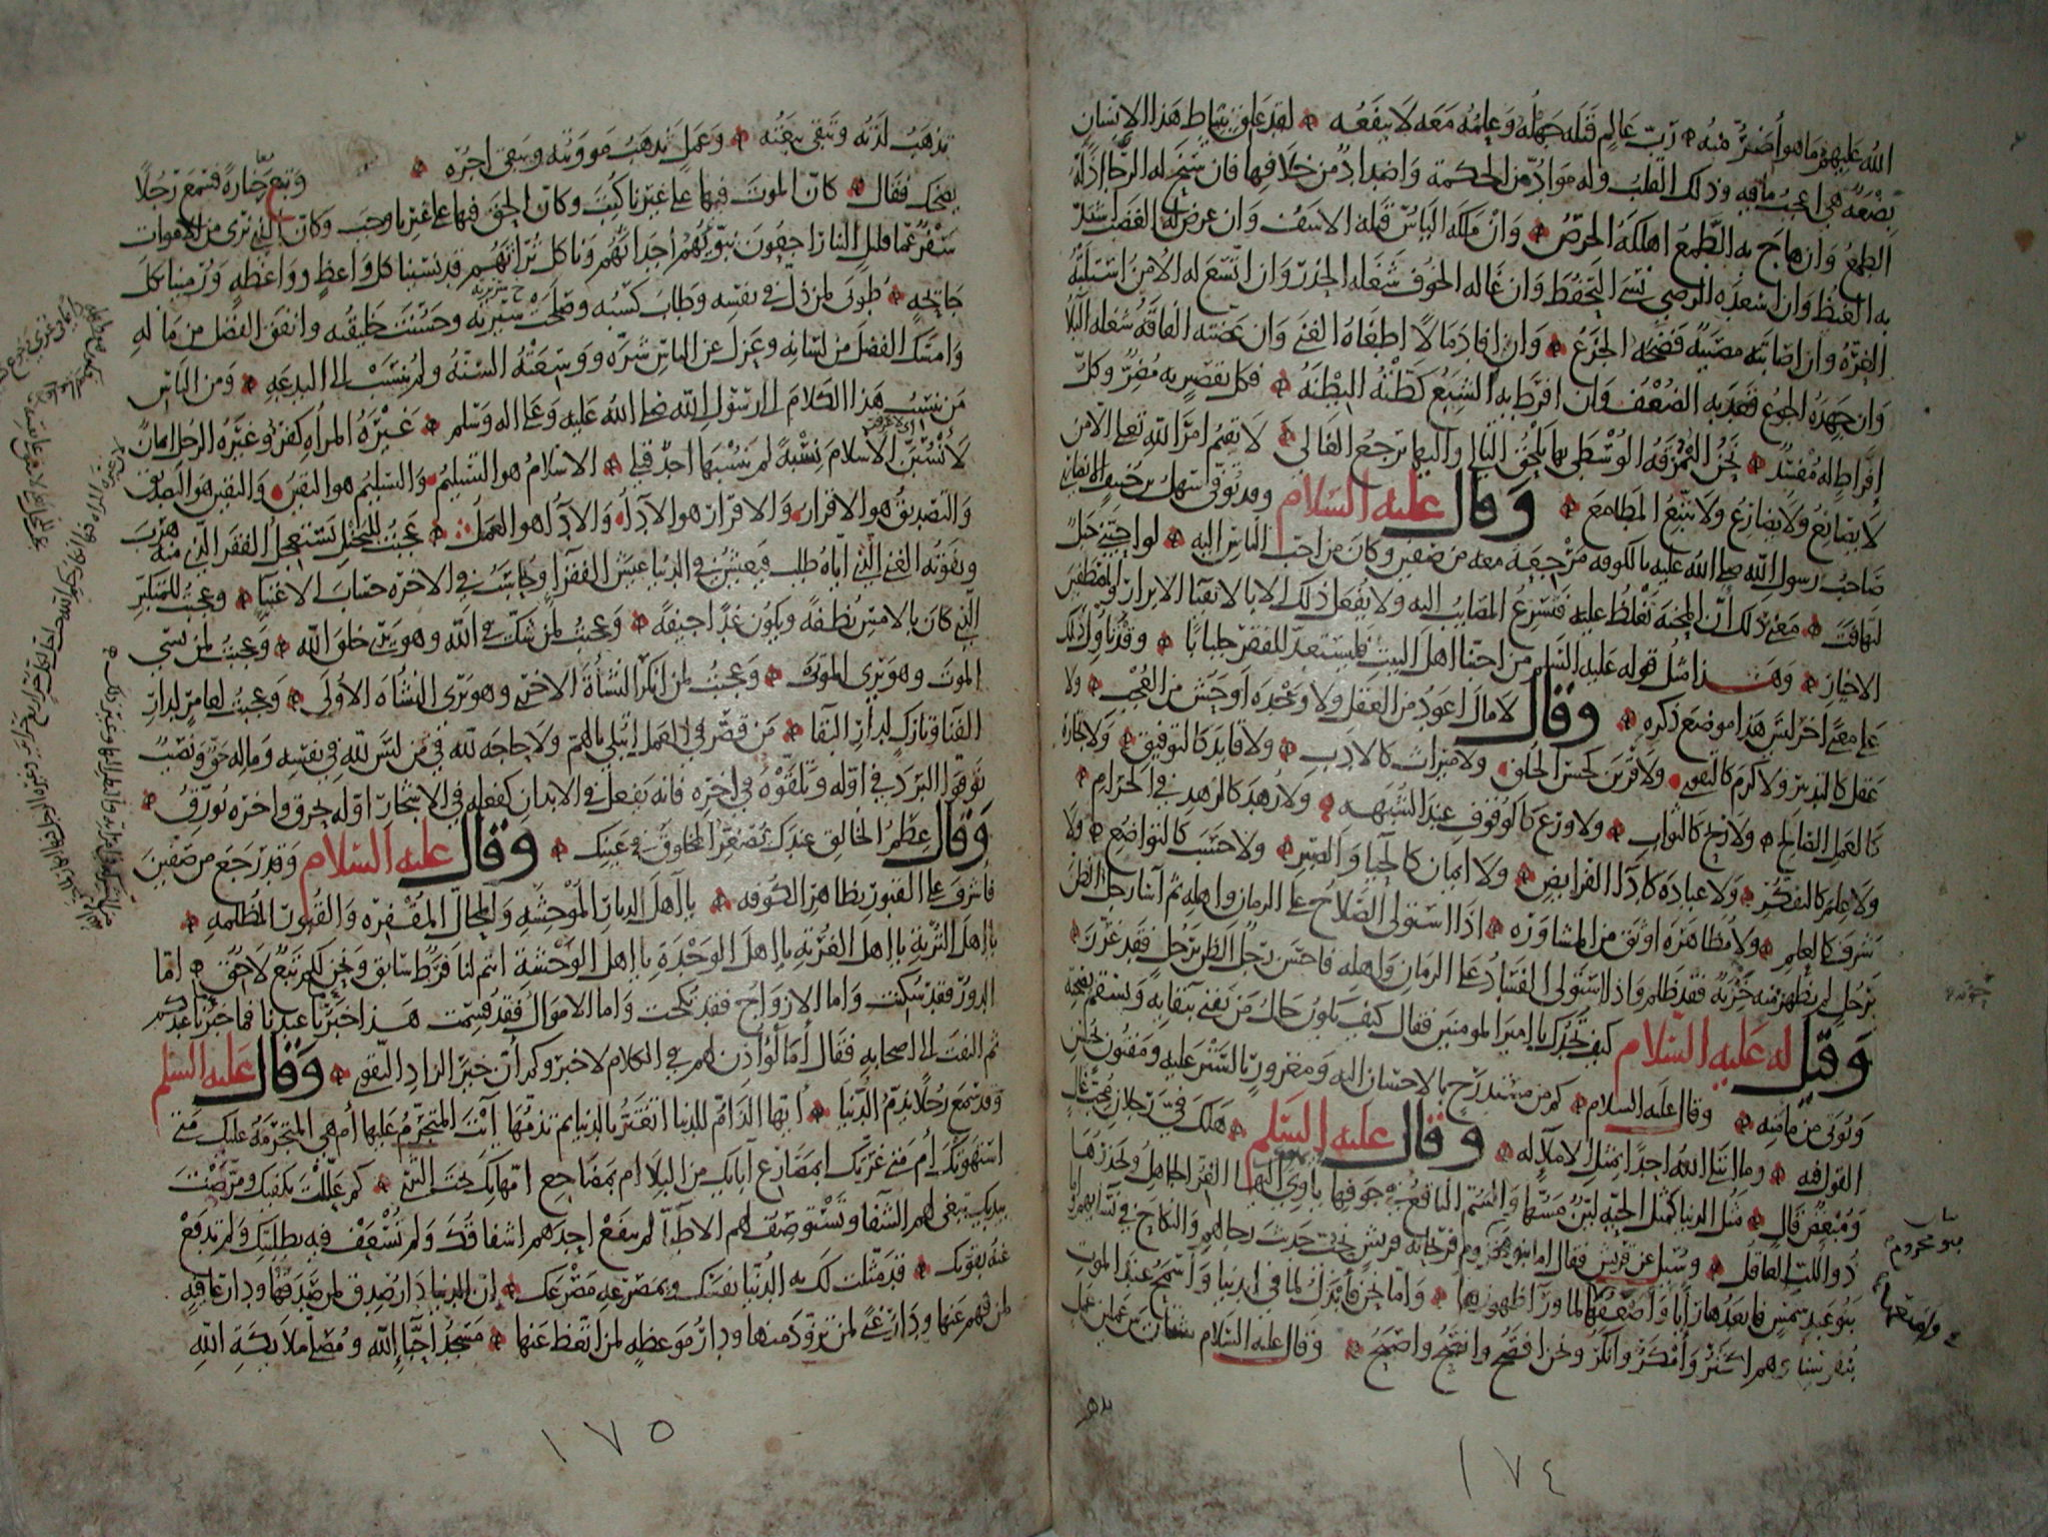 الله عليهم ما هو أضر منه رب عالم قتله جهله وعلمه معه لا ينفعه لقد علق بنياط هذا الإنسان
بضعة هي اعجب ما فيه وذلك القلب وله مواد من الحكمة واضداد من خلافها فان سنح له الرجا اذله
الطمع وان هاج به الطمع اهلكه الحرص وان ملكه الياس قتله الاسف وان عرض له الغضب اشتد
به الغيظ وان اسعده الرضى نسي التحفظ وان غاله الخوف شغله الحذر وان اتسع له الامن استلبته
الغرة وان اصابته مصيبة فضحه الجزع وان افاد مالا اطغاه الغنى وان عضته الفاقة شغله البلا
وان جهده الجوع قعد به الضعف وان افرط به الشبع كظته البطنة فكل تقصير به مضر وكل
إفراط له مفسد نحن النمرقة الوسطى بها يلحق التالي واليها يرجع الغالي لا يقيم امر الله تعالى الا من
لا يصانع ولا يضارع ولا يتبع المطامع وقال عليه السلام وقد توفى سهل بن حنيف الانصاري
صاحب رسول الله صلى الله عليه بالكوفه مرجعه معه من صفين وكان من احب الناس اليه لو احبني جبل
لتهافت معنى ذلك أن المحنة تغلظ عليه فتسرع المصايب اليه ولا يفعل ذلك الا بالاتقيا الابرار والمصطفين
الاخيار وهذا مثل قوله عليه السلم من احبنا اهل البيت فليستعد للفقر جلبابا وقد يأول ذلك
على معنى اخر ليس هذا موضع ذكره وقال لا مال اعود من العقل ولا وحدة اوحش من العجب ولا
عقل كالتدبير ولا كرم كالتقوى ولا قرين كحسن الخلق ولا ميراث كالادب ولا قايد كالتوفيق ولا تجارة
كالعمل الصالح ولا ربح كالثواب ولا ورع كالوقوف عند الشبهه ولا زهد كالزهد في الحرام
ولا علم كالتفكر ولا عبادة كاداء الفرايض ولا ايمان كالحيا والصبر ولا حسب كالتواضع ولا
شرف كالعلم ولا مظاهرة اوثق من المشاورة اذا استولى الصلاح على الزمان واهله ثم اسا رجل الظن
برجل لم يظهر منه خزية فقد ظلم واذا استولى الفساد على الزمان واهله فاحسن رجل الظن برجل فقد غرر
وقيل له عليه السلام كيف تجدك يا امير المومنين فقال كيف يكون حال من يفنى ببقايه ويسقم بصحته
ويوتى من مأمنه وقال عليه السلام كم من مستدرج بالاحسان اليه ومغرور بالستر عليه ومفتون بحسن
القول فيه وما ابتلى الله احدا بمثل الاملا له وقال عليه السلم هلك في رجلان محب غال
ومبغض قال مثل الدنيا كمثل الحية لين مسها والسم الناقع في جوفها يهوي اليها الغر الجاهل ويحذرها
ذو اللب العاقل وسئل عن قريش فقال اما بنو مخزوم فريحانة قريش تحب حديث رجالهم والنكاح في نسائهم واما
بنو عبد شمس فابعدها رأيا وأمنعها لما وراء ظهورها واما نحن فأبذل لما في ايدينا وأسمح عند الموت
بنفوسنا وهم اكثر وأمكر وأنكر ونحن افصح وانصح واصبح وقال عليه السلام شتان بين عملين عمل
بنو مخزوم
١٧٤
تذهب لذته وتبقى تبعته وعمل تذهب موونته ويبقى اجره وتبع جنازة فسمع رجلا
يضحك فقال كان الموت فيها على غيرنا كتب وكان الحق فيها على غيرنا وجب وكان الذي نرى من الاموات
سفر عما قليل الينا راجعون نبويهم اجداثهم وناكل تراثهم قد نسينا كل واعظ وواعظه ورمينا بكل
جايحه طوبى لمن ذل في نفسه وطاب كسبه وصلحت سريرته وحسنت خليقته وانفق الفضل من ماله
وامسك الفضل من لسانه وعزل عن الناس شره ووسعته السنة ولم ينسب الى البدعه ومن الناس
من ينسب هذا الكلام الى رسول الله صلى الله عليه وعلى اله وسلم غيرة المرأة كفر وغيرة الرجل ايمان
لأنسبن الاسلام نسبة لم ينسبها احد قبلي الاسلام هو التسليم والتسليم هو اليقين واليقين هو التصديق
والتصديق هو الاقرار والاقرار هو الادا والادا هو العمل عجبت للبخيل يستعجل الفقر الذي منه هرب
ويفوته الغنى الذي اياه طلب فيعيش في الدنيا عيش الفقرا ويحاسب في الاخرة حساب الاغنيا وعجبت للمتكبر
الذي كان بالامس نطفة ويكون غدا جيفة وعجبت لمن شك في الله وهو يرى خلق الله وعجبت لمن نسي
الموت وهو يرى الموتى وعجبت لمن انكر النشأة الاخرى وهو يرى النشأة الأولى وعجبت لعامر لدار
الفنا وتارك لدار البقا من قصر في العمل ابتلي بالهم ولا حاجة لله في من ليس لله في نفسه وماله حق ونصيب
توقوا البرد في اوله وتلقوه في اخره فانه يفعل في الابدان كفعله في الاشجار اوله يحرق واخره يورق
وقال عظم الخالق عندك يصغر المخلوق في عينك وقال عليه السلام وقد رجع من صفين
فاشرف على القبور بظاهر الكوفه يا أهل الديار الموحشه والمحال المقفره والقبور المظلمه
يا اهل التربة يا اهل الغربة يا اهل الوحدة يا اهل الوحشة انتم لنا فرط سابق ونحن لكم تبع لاحق اما
الدور فقد سكنت واما الازواج فقد نكحت واما الاموال فقد قسمت هذا خبر ما عندنا فما خبر ما عندكم
ثم التفت الى اصحابه فقال أما لو أذن لهم في الكلام لاخبروكم أن خير الزاد التقوى وقال عليه السلم
وقد سمع رجلا يذم الدنيا أيها الذام للدنيا اتغتر بالدنيا ثم تذمها أنت المتجرم عليها أم هي المتجرمة عليك متى
استهوتك أم متى غرتك ابمصارع آبايك من البلا ام بمضاجع امهاتك تحت الثرى كم عللت بكفيك ومرضت
بيديك تبغى لهم الشفا وتستوصف لهم الاطبا لم ينفع احدهم اشفاقك ولم تسعف فيه بطلبتك ولم تدفع
عنه بقوتك قد مثلت لك به الدنيا نفسك وبمصرعه مصرعك إن الدنيا دار صدق لمن صدقها ودار عافيه
لمن فهم عنها ودار غنى لمن تزود منها ودار موعظه لمن اتعظ عنها مسجد احباء الله ومصلى ملايكة الله
١٧٥